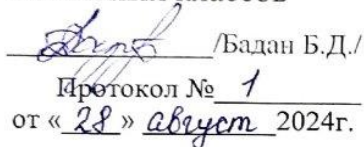 /Бадан Б.Д./
Протокол № 1
от «28» август 2024г.